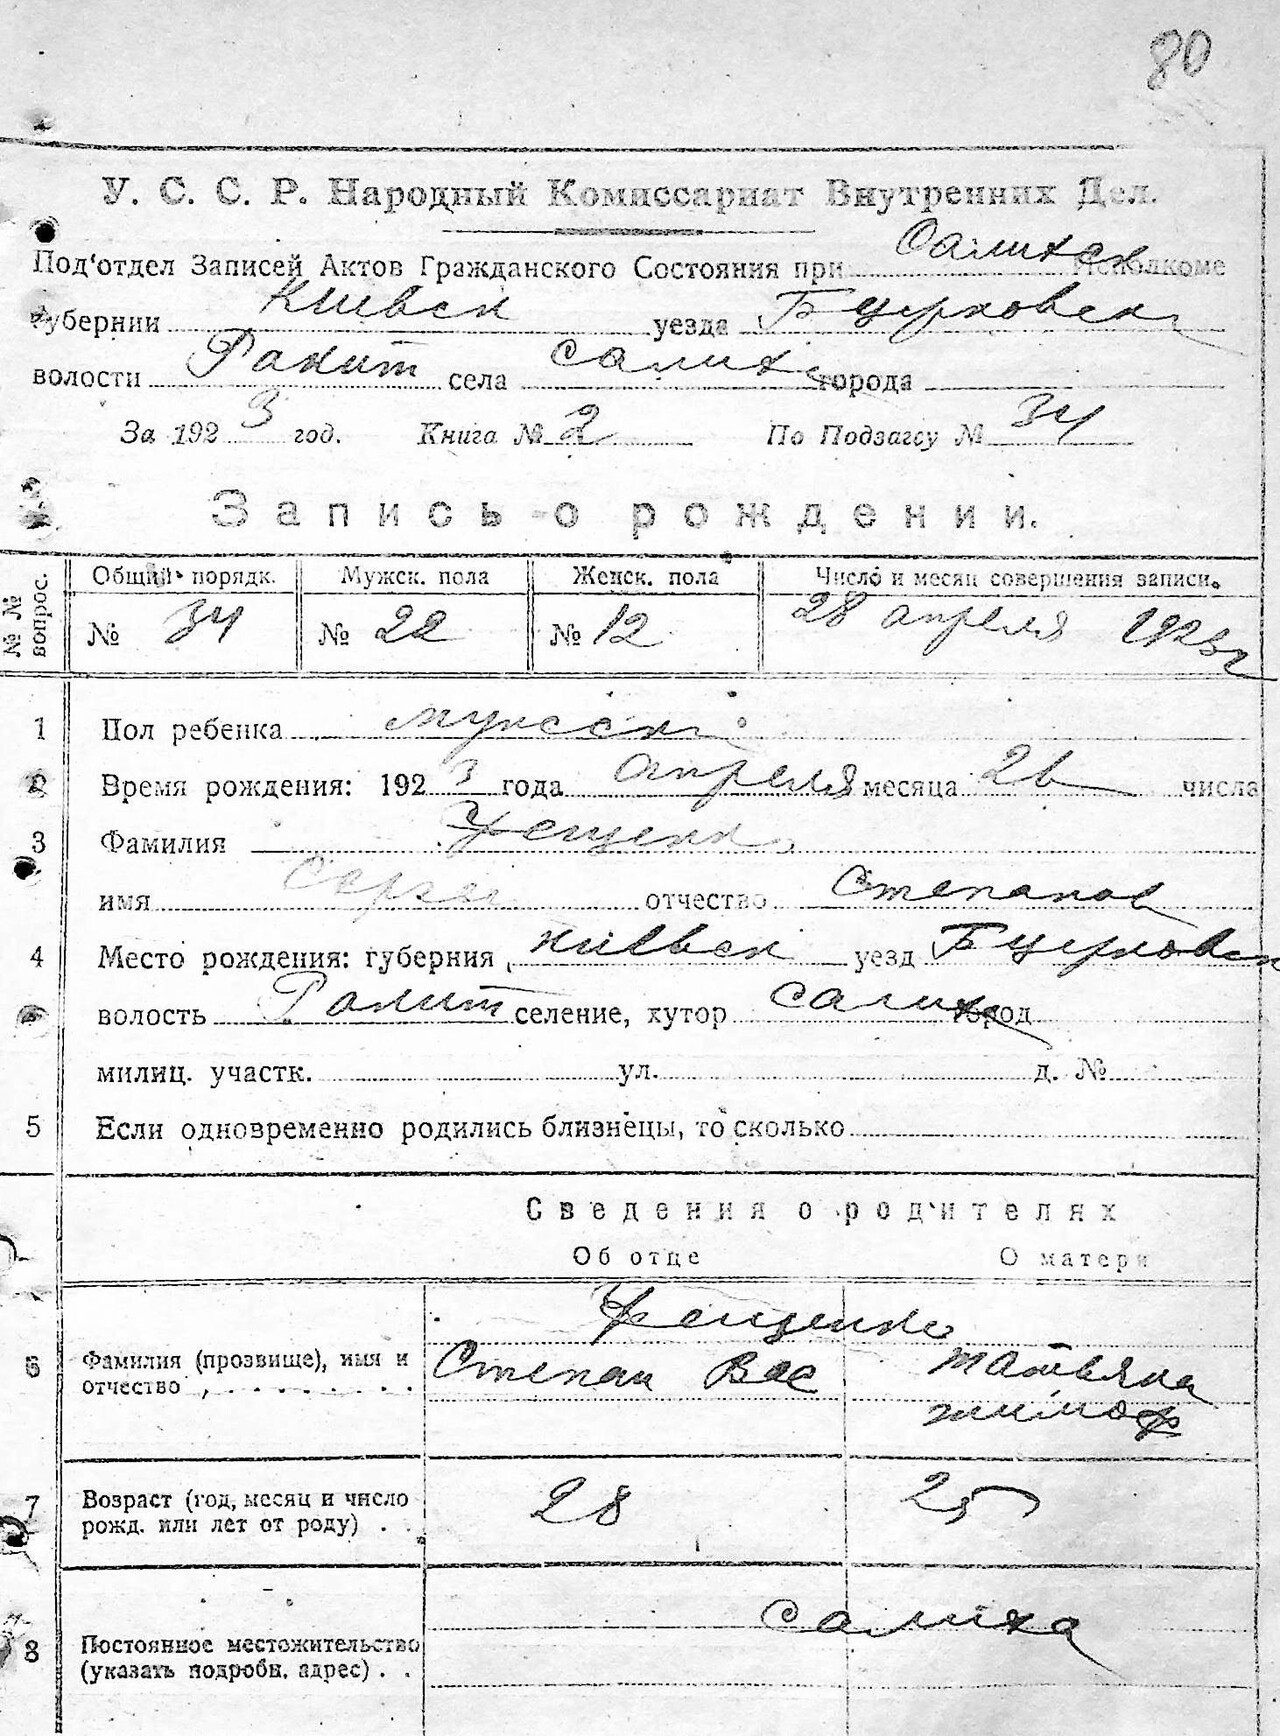 80
У. С. С. Р. Народный Комиссариат Внутренних Дел.
Под‘отдел Записей Актов Гражданского Состояния при Салихск Исполкоме
губернии Киевск уезда Бцерковск
волости Ракит села Салиха города
За 1923 год. Книга № 2 По Подзагсу № 34
Запись о рождении.
№ № вопрос.
Общий порядк. Мужск. пола Женск. пола Число и месяц совершения записи.
№ 34 № 22 № 12 28 апреля 1923 г
1 Пол ребенка мужски
2 Время рождения: 1923 года Апреля месяца 26 числа
3 Фамилия Фещенко
имя Сергей отчество Степанов
4 Место рождения: губерния Киевск уезд Бцерковск
волость Ракит селение, хутор Салиха город
милиц. участк. ул. д. №
5 Если одновременно родились близнецы, то сколько
Сведения о родителях
Об отце О матери
Фещенко
6 Фамилия (прозвище), имя и Степан Вас Татьяна
отчество Тимоф
7 Возраст (год, месяц и число 28 25
рожд. или лет от роду)
Салиха
8 Постоянное местожительство
(указать подробн. адрес)